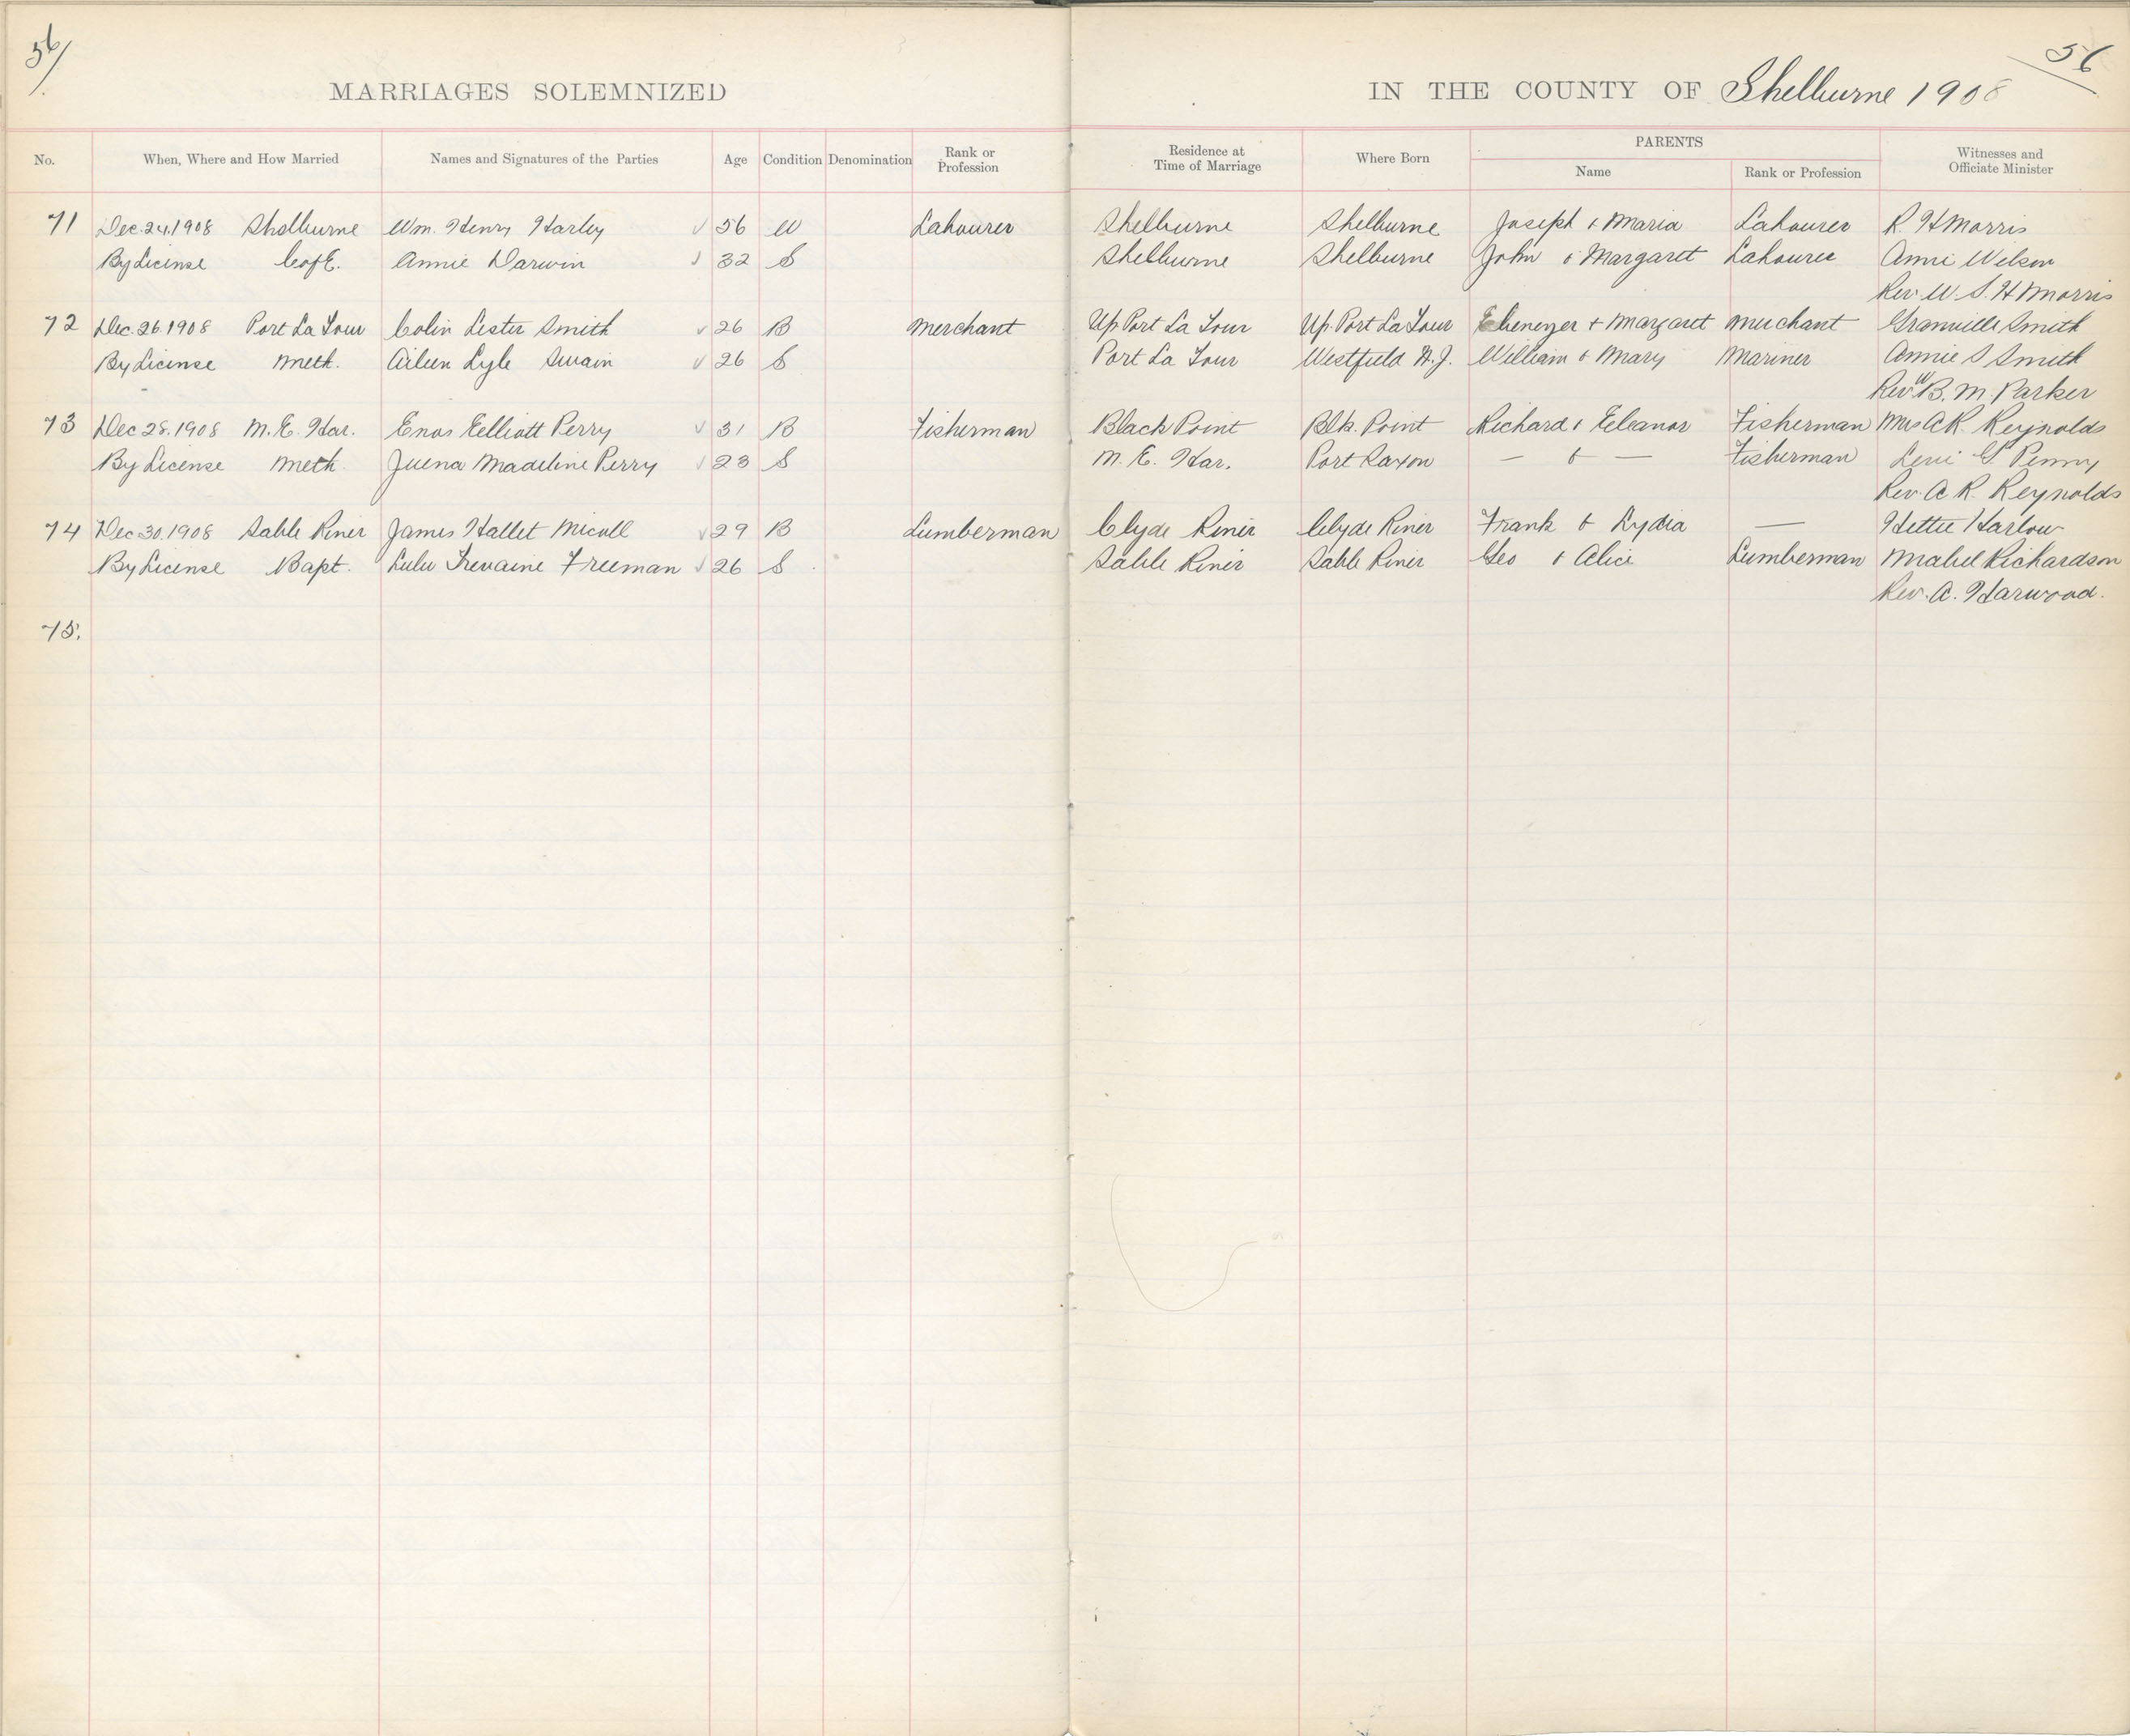 56/
56
MARRIAGES SOLEMNIZED IN THE COUNTY OF Shelburne 1908
No. When, Where and How Married Names and Signatures of the Parties Age Condition Denomination Rank or Profession Residence at Time of Marriage Where Born PARENTS Name Rank or Profession Witnesses and Officiate Minister
71 Dec. 24, 1908 Shelburne Wm. Henry Harley 56 W Labourer Shelburne Shelburne Joseph & Maria Labourer R. H Morris
By License C of E. Annie Darwin 32 S Shelburne Shelburne John & Margaret Labourer Annie Wilson
Rev. W. S. H Morris
72 Dec. 26. 1908 Port La Tour Colin Lester Smith 26 B Merchant Up Port La Tour Up. Port La Tour Ebenezer & Margaret Merchant Granville Smith
By License Meth. Aileen Lyle Swain 26 S Port La Tour Westfield N.J. William & Mary Mariner Annie S Smith
Rev. W B. M. Parker
73 Dec 28. 1908 M. E. Har. Enos Elliott Perry 31 B Fisherman Black Point Blk. Point Richard & Eleanor Fisherman Mrs A R. Reynolds
By License Meth. Juena Madeline Perry 23 S M. E. Har. Port Saxon — & — Fisherman Levi G Penny
Rev. A R. Reynolds
74 Dec 30, 1908 Sable River James Hallet Nicoll 29 B Lumberman Clyde River Clyde River Frank & Lydia — Hettie Harlow
By License Bapt. Lulu Freeman 26 S Sable River Sable River Geo & Alice Lumberman Mabel Richardson
Rev. A. Harwood.
75.